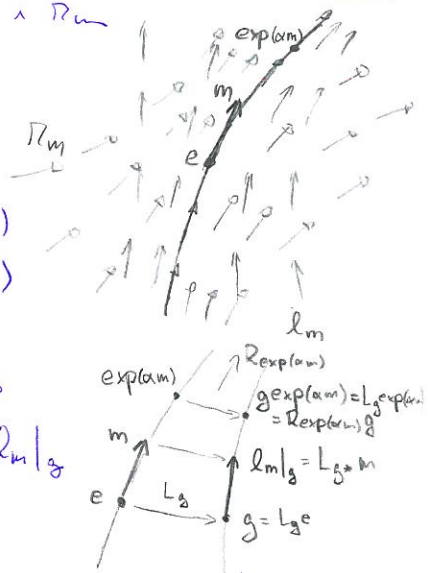 exp(αm)
m
e
l_m
R_exp(αm)
exp(αm)
g exp(αm) = L_g exp(αm)
= R_exp(αm) g
m
l_m|_g = L_g* m
e
L_g
g = L_g e